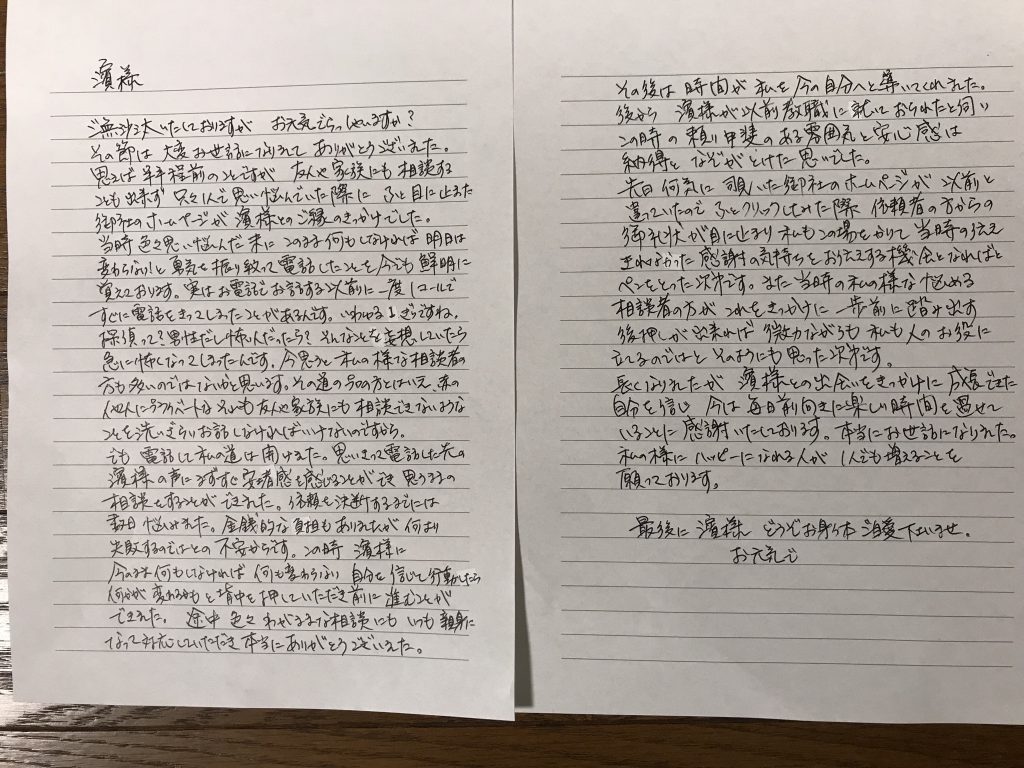 濱様
ご無沙汰いたしておりますが お元気でらっしゃいますか?
その節は大変お世話になりまして ありがとうございました。
思えば半年程前のことですが 友人や家族にも相談する
ことも出来ず 只々1人で思い悩んでいた際に ふと目に止まった
御社のホームページが 濱様とのご縁のきっかけでした。
当時 色々思い悩んだ末に このまま何もしなければ 明日は
変わらない!と 勇気を振り絞って電話したことを今でも鮮明に
覚えております。実はお電話でお話する以前に一度1コールで
すぐに電話をきってしまったことがあるんです。いわゆる1ぎりですね。
探偵って?男性だし怖い人だったら?そんなことを妄想していたら
急に怖くなってしまったんです。今思うと私の様な相談者の
方も多いのではないかと思います。その道のプロの方とはいえ、赤の
他人にプライベートな そもそも友人や家族にも相談できないような
ことを洗いざらいお話しなければいけないのですから。
でも 電話して私の道は開けました。思いきって電話した先の
濱様の声に まずすぐ安堵感を感じることができ 思うままの
相談をすることができました。依頼を決断するまでには
数日悩みました。金銭的な負担もありましたが 何より
失敗するのではとの不安からです。この時 濱様に
今のまま何もしなければ 何も変わらない 自分を信じて行動したら
何かが変わるかもと背中を押していただき前に進むことが
できました。 途中 色々わがままな相談にも いつも親身に
なって対応していただき 本当にありがとうございました。
その後は 時間が 私を今の自分へと導いてくれました。
後から 濱様が以前教職に就いておられたと伺い
この時の頼り甲斐のある雰囲気と安心感は
納得と なぞがとけた思いでした。
先日 何気に覗いた御社のホームページが 以前と
違っていたので ふとクリックしてみた際 依頼者の方からの
御礼状が目に止まり 私もこの場をかりて 当時の伝え
きれなかった感謝の気持ちをお伝えする機会となればと
ペンをとった次第です。また 当時の私の様な悩める
相談者の方が これをきっかけに 一歩前に踏み出す
後押しが出来れば 微力ながらも 私も人のお役に
立てるのではと そのようにも思った次第です。
長くなりましたが 濱様との出会いをきっかけに 成長できた
自分を信じ 今は毎日前向きに楽しい時間を過せて
いることに感謝いたしております。本当にお世話になりました。
私の様に ハッピーになれる人が 1人でも増えることを
願っております。
最後に 濱様 どうぞお身体ご自愛下さいませ。
お元気で